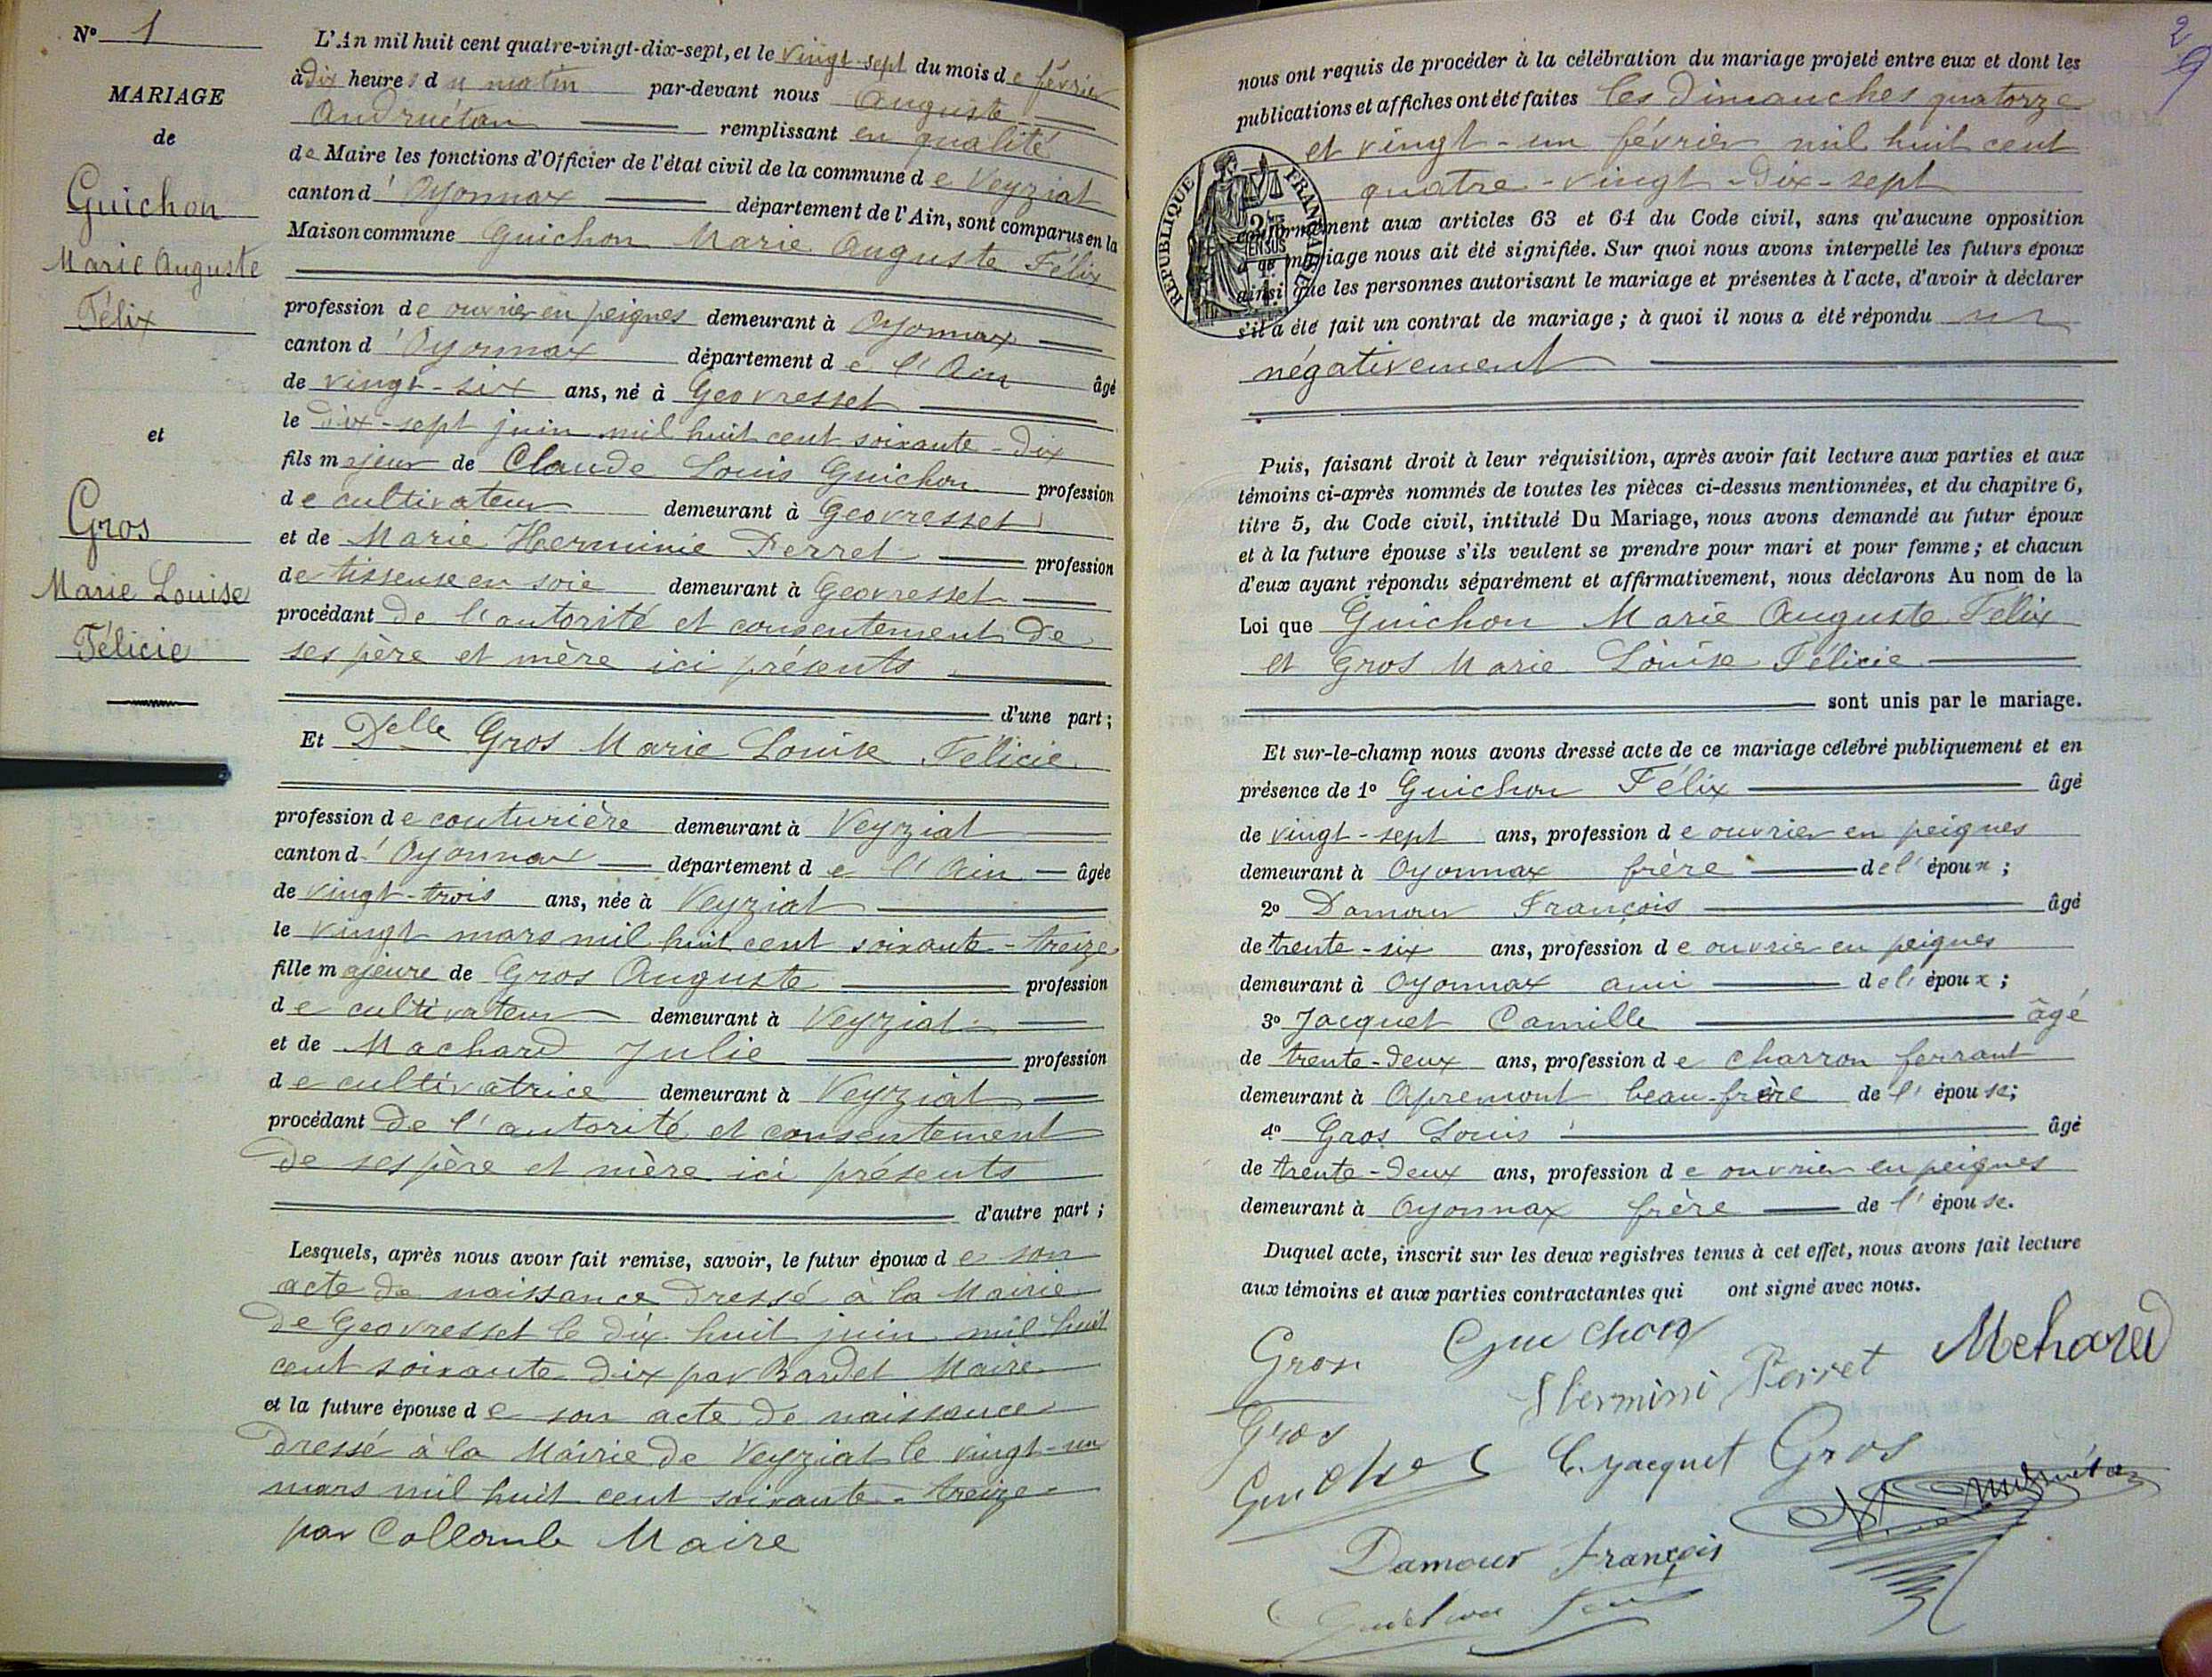 N° 1
MARIAGE
de
Guichon
Marie Auguste
Félix
et
Gros
Marie Louise
Félicie
L'An mil huit cent quatre-vingt-dix-sept, et le vingt-sept du mois de février
à dix heures du matin par-devant nous Auguste
Andruétan remplissant en qualité
de Maire les fonctions d'Officier de l'état civil de la commune de Veyziat
canton d'Oyonnax département de l'Ain, sont comparus en la
Maison commune Guichon Marie Auguste Félix
profession de ouvrier en peignes demeurant à Oyonnax
canton d'Oyonnax département de l'Ain âgé
de vingt-six ans, né à Geovresset
le dix-sept juin mil huit cent soixante-dix
fils majeur de Claude Louis Guichon profession
de cultivateur demeurant à Geovresset
et de Marie Herminie Perret profession
de tisseuse en soie demeurant à Geovresset
procédant de l'autorité et consentement de
ses père et mère ici présents
d'une part;
Et Delle Gros Marie Louise Félicie
profession de couturière demeurant à Veyziat
canton d'Oyonnax département de l'Ain âgée
de vingt-trois ans, née à Veyziat
le vingt mars mil huit cent soixante-treize
fille majeure de Gros Auguste profession
de cultivateur demeurant à Veyziat
et de Machard Julie profession
de cultivatrice demeurant à Veyziat
procédant de l'autorité et consentement
de ses père et mère ici présents
d'autre part;
Lesquels, après nous avoir fait remise, savoir, le futur époux de son
acte de naissance dressé à la Mairie
de Geovresset le dix huit juin mil huit
cent soixante dix par Bardet Maire
et la future épouse de son acte de naissance
dressé à la Mairie de Veyziat le vingt-un
mars mil huit cent soixante-treize
par Collomb Maire
2
9
nous ont requis de procéder à la célébration du mariage projeté entre eux et dont les
publications et affiches ont été faites les dimanches quatorze
et vingt-un février mil huit cent
quatre-vingt-dix-sept
RÉPUBLIQUE FRANÇAISE
conformément aux articles 63 et 64 du Code civil, sans qu'aucune opposition
à ce mariage nous ait été signifiée. Sur quoi nous avons interpellé les futurs époux
ainsi que les personnes autorisant le mariage et présentes à l'acte, d'avoir à déclarer
s'il a été fait un contrat de mariage; à quoi il nous a été répondu
négativement
Puis, faisant droit à leur réquisition, après avoir fait lecture aux parties et aux
témoins ci-après nommés de toutes les pièces ci-dessus mentionnées, et du chapitre 6,
titre 5, du Code civil, intitulé Du Mariage, nous avons demandé au futur époux
et à la future épouse s'ils veulent se prendre pour mari et pour femme; et chacun
d'eux ayant répondu séparément et affirmativement, nous déclarons Au nom de la
Loi que Guichon Marie Auguste Félix
et Gros Marie Louise Félicie
sont unis par le mariage.
Et sur-le-champ nous avons dressé acte de ce mariage célébré publiquement et en
présence de 1° Guichon Félix âgé
de vingt-sept ans, profession de ouvrier en peignes
demeurant à Oyonnax frère de l'époux;
2° Damour François âgé
de trente-six ans, profession de ouvrier en peignes
demeurant à Oyonnax ami de l'époux;
3° Jacquet Camille âgé
de trente-deux ans, profession de charron ferrant
demeurant à Apremont beau-frère de l'épouse;
4° Gros Louis âgé
de trente-deux ans, profession de ouvrier en peignes
demeurant à Oyonnax frère de l'épouse.
Duquel acte, inscrit sur les deux registres tenus à cet effet, nous avons fait lecture
aux témoins et aux parties contractantes qui ont signé avec nous.
Gros Guichon Mehard
Hermini Perret
Gros
C. Jacquet Gros
Damour François